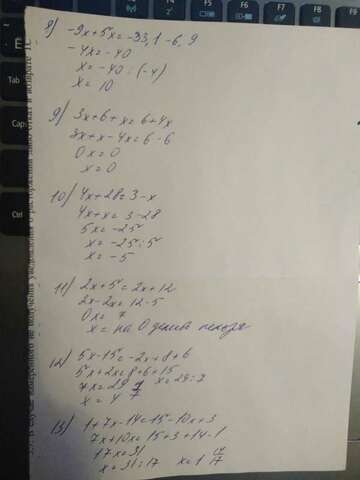 8) -9x+5x=-33,1-6,9
-4x=-40
x=-40:(-4)
x=10
9) 3x+6+x=6+4x
3x+x-4x=6-6
0x=0
x=0
10) 4x+28=3-x
4x+x=3-28
5x=-25
x=-25:5
x=-5
11) 2x+5=2x+12
2x-2x=12-5
0x=7
x= на 0 делить нельзя
12) 5x-15=-2x+8+6
5x+2x=8+6+15
7x=29 x=29:7
x=4 1/7
13) 1+7x-14=15-10x+3
7x+10x=15+3+14-1
17x=31
x=31:17 x=1 14/17